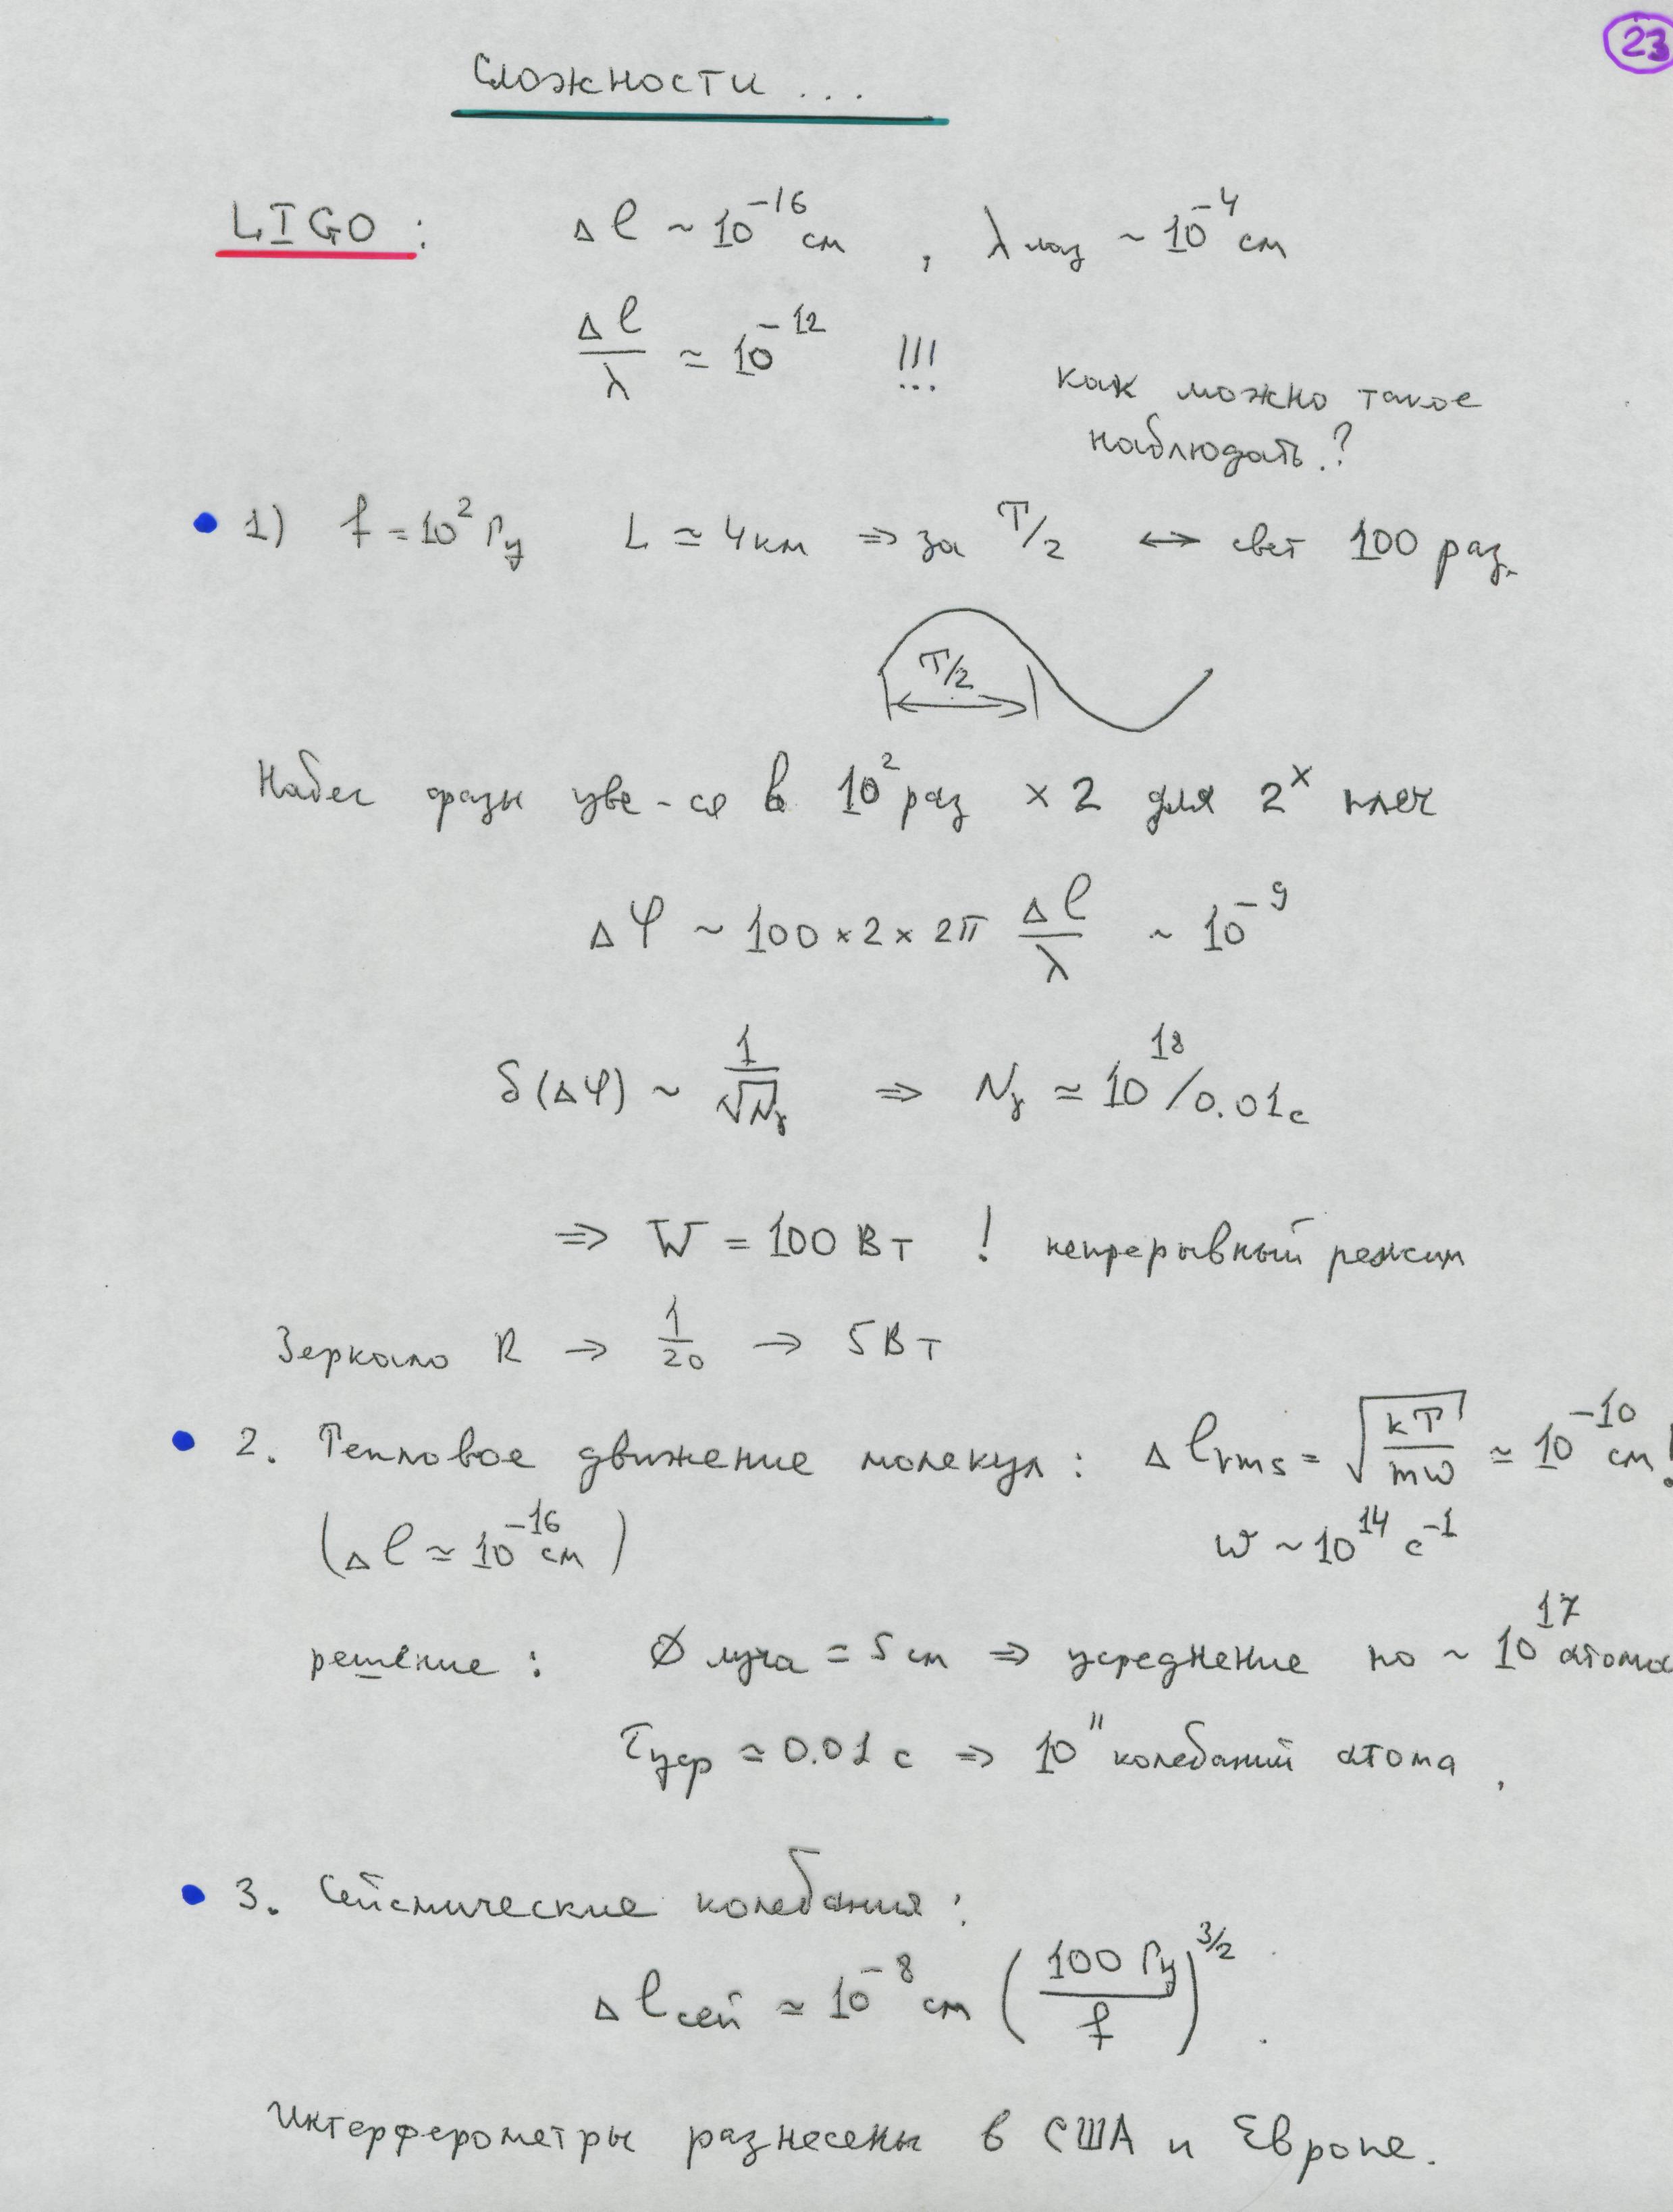 23
Сложности ...
LIGO : Δl ~ 10⁻¹⁶ см , λ лаз ~ 10⁻⁴ см
Δl/λ ≃ 10⁻¹² !!! как можно такое
наблюдать ?
• 1) f = 10² Гц L ≃ 4 км ⇒ за T/2 ↔ свет 100 раз.
T/2
Набег фазы уве-ся в 10² раз × 2 для 2ˣ плеч
Δφ ~ 100 × 2 × 2π Δl/λ ~ 10⁻⁹
δ(Δφ) ~ 1/√Nγ ⇒ Nγ ≃ 10¹⁸/0.01 с
⇒ W = 100 Вт ! непрерывный режим
Зеркало R → 1/20 → 5 Вт
• 2. Тепловое движение молекул : Δl rms = √(kT/mω) ≃ 10⁻¹⁰ см !
(Δl ≃ 10⁻¹⁶ см) ω ~ 10¹⁴ с⁻¹
решение : Ø луча = 5 см ⇒ усреднение по ~ 10¹⁷ атома
τ уср ≃ 0.01 с ⇒ 10¹¹ колебаний атома .
• 3. Сейсмические колебания :
Δl сей ≃ 10⁻⁸ см (100 Гц/f)^3/2 .
Интерферометры разнесены в США и Европе.